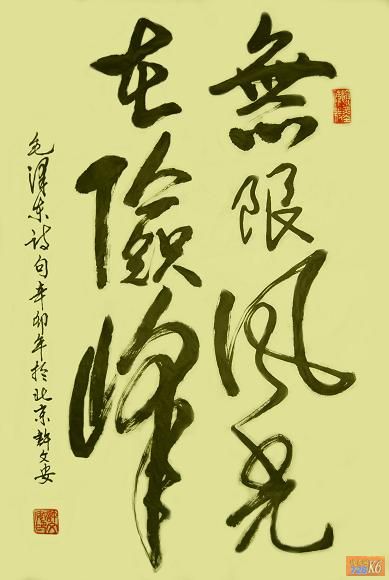 無限風光
在險峰
毛澤东詩句辛卯年於北京許文安
K6